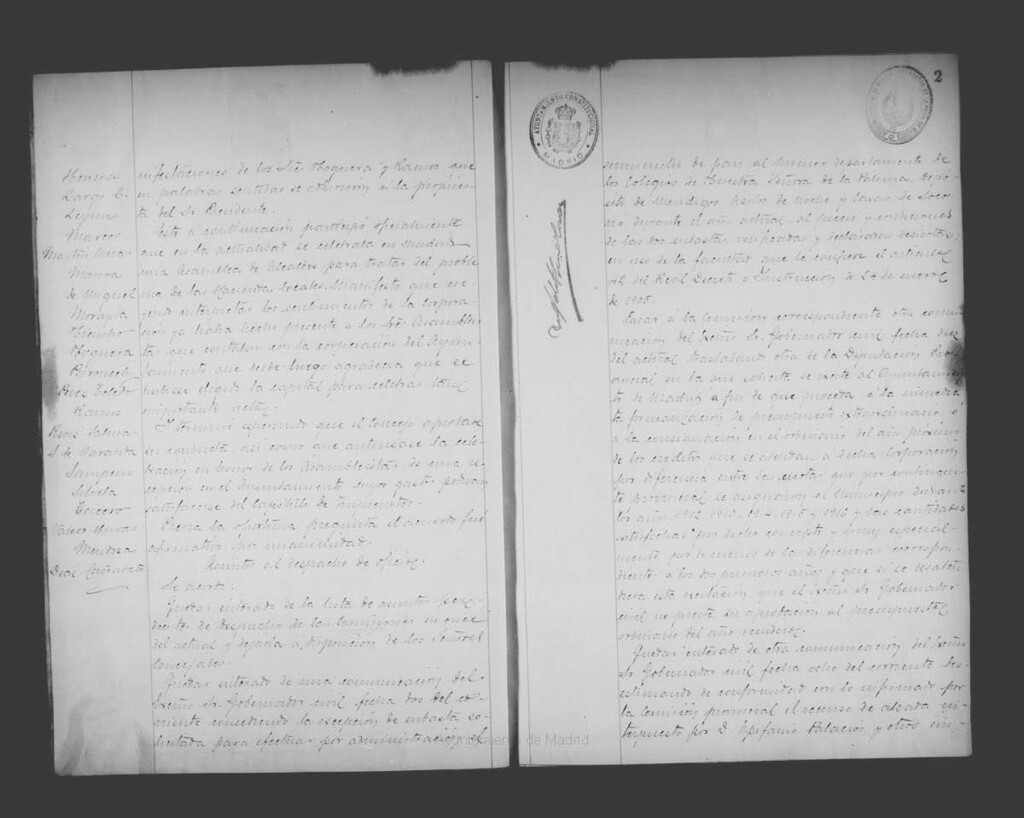 Herrera
Largo C.
Lequi
Marcos
Martín
Maura
de Miguel
Morayta
Noguera
Díez Toledo
Ramos
Reus
S. de Naranda
Sampeño
Silvela
Tercero
Valero
Mendoza
Díaz Cañabate
nifestaciones de los Sres Noguera y Ramos que
en palabras sentidas se adhirieron a la propues-
ta del Sr Presidente.
Este a continuación participó oficialmente
que en la actualidad se celebraba en Madrid
una Asamblea de Alcaldes para tratar del proble-
ma de las Haciendas locales. Manifestó que
interpretar los sentimientos de la corpora-
ción ya había hecho presente a los Sres Asambleis-
tas que contaban con la corporación del Ayun-
tamiento que desde luego agradecía que se
hubiese elegido la capital para celebrar tan
importante acto.
Y terminó esperando que el Concejo aprobase
su conducta así como que autorizase la cele-
bración en honor de los Asambleistas de una re-
cepción en el Ayuntamiento cuyos gastos podrían
satisfacerse del capítulo de Imprevistos.
Previa la oportuna pregunta el acuerdo fué
afirmativo por unanimidad.
Asuntos al despacho de oficio.
Se acordó:
Quedar enterado de la lista de asuntos pen-
dientes de despacho de las Comisiones en once
del actual y dejarla a disposición de los señores
Concejales.
Quedar enterado de una comunicación del
Excmo Sr. Gobernador civil fecha dos del co-
rriente concediendo la excepción de subasta so-
licitada para efectuar por administración el
Ayuntamiento de Madrid
AYUNTAMIENTO CONSTITUCIONAL
MADRID
2
suministro de pan al primer departamento de
los Colegios de Nuestra Señora de la Paloma Depó-
sito de Mendigos Asilos de Noche y Casas de Soco-
rro durante el año actual al precio y condiciones
de las dos subastas verificadas y declaradas desiertas,
en uso de la facultad que le confiere el artículo
42 del Real Decreto e Instrucción de 24 de enero
de 1905.
Pasar a la Comisión correspondiente otra comu-
nicación del Excmo Sr. Gobernador civil fecha diez
del actual trasladando otra de la Diputación Pro-
vincial en la que solicita se excite al Ayuntamien-
to de Madrid a fin de que proceda a la inmedia-
ta formalización de presupuesto extraordinario o
a la consignación en el ordinario del año próximo
de los créditos que se adeudan a dicha Corporación
por diferencia entre las cuotas que por contingen-
te provincial se asignaron al Municipio durante
los años 1912 1913 1914 1915 y 1916 y las cantidades
satisfechas por dicho concepto y muy especial-
mente por lo menos de la diferencia correspon-
diente a los dos primeros años y que si se
esta excitación, que el Excmo Sr. Gobernador
civil no preste su aprobación al presupuesto
ordinario del año venidero.
Quedar enterado de otra comunicación del Excmo
Sr. Gobernador civil fecha ocho del corriente des-
estimando de conformidad con lo informado por
la Comisión provincial el recurso de alzada in-
terpuesto por D. Epifanio Palacios y otros